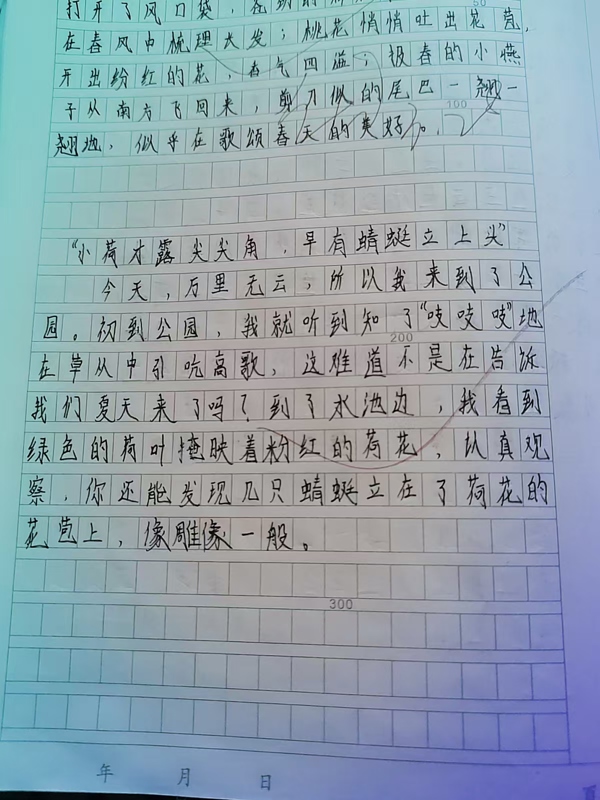 打开了风口袋，
50
在春风中梳理大发；桃花悄悄吐出花苞，
开出纷红的花，香气四溢；报春的小燕
子从南方飞回来，剪刀似的尾巴一翘一
100
翘地，似乎在歌颂春天的美好。
“小荷才露尖尖角，早有蜻蜓立上头”
今天，万里无云，所以我来到了公
园。初到公园，我就听到知了“吱吱吱”地
200
在草从中引吭高歌，这难道不是在告诉
我们夏天来了吗？到了水池边，我看到
绿色的荷叶掩映着粉红的荷花，认真观
察，你还能发现几只蜻蜓立在了荷花的
花苞上，像雕像一般。
300
年 月 日